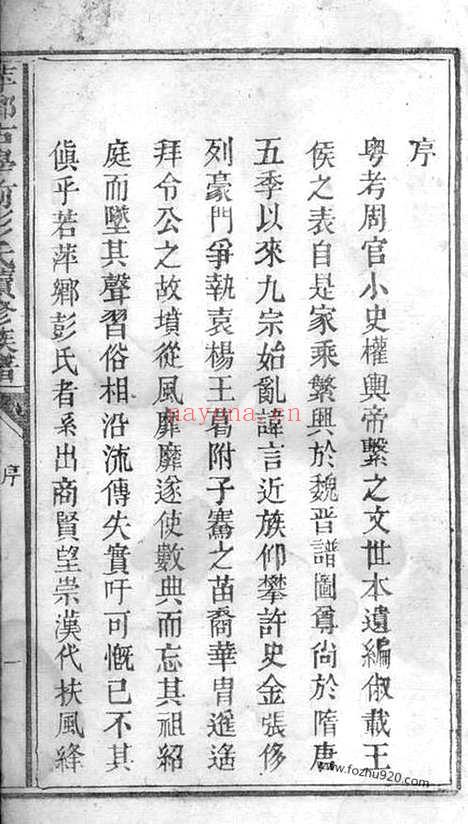 序
粵考周官小史權輿帝繫之文世本遺編俶載王
侯之表自是家乘繁興於魏晉譜圖尊尚於隋唐
五季以來九宗始亂諱言近族仰攀許史金張侈
列豪門爭執袁楊王葛附子騫之苗裔華胄遙遙
拜令公之故墳從風靡靡遂使數典而忘其祖紹
庭而墜其聲習俗相沿流傳失實吁可慨已不其
傎乎若萍鄉彭氏者系出商賢望崇漢代扶風絳
彭氏續修族譜
序
一
nayona.cn
www.fozhu920.com